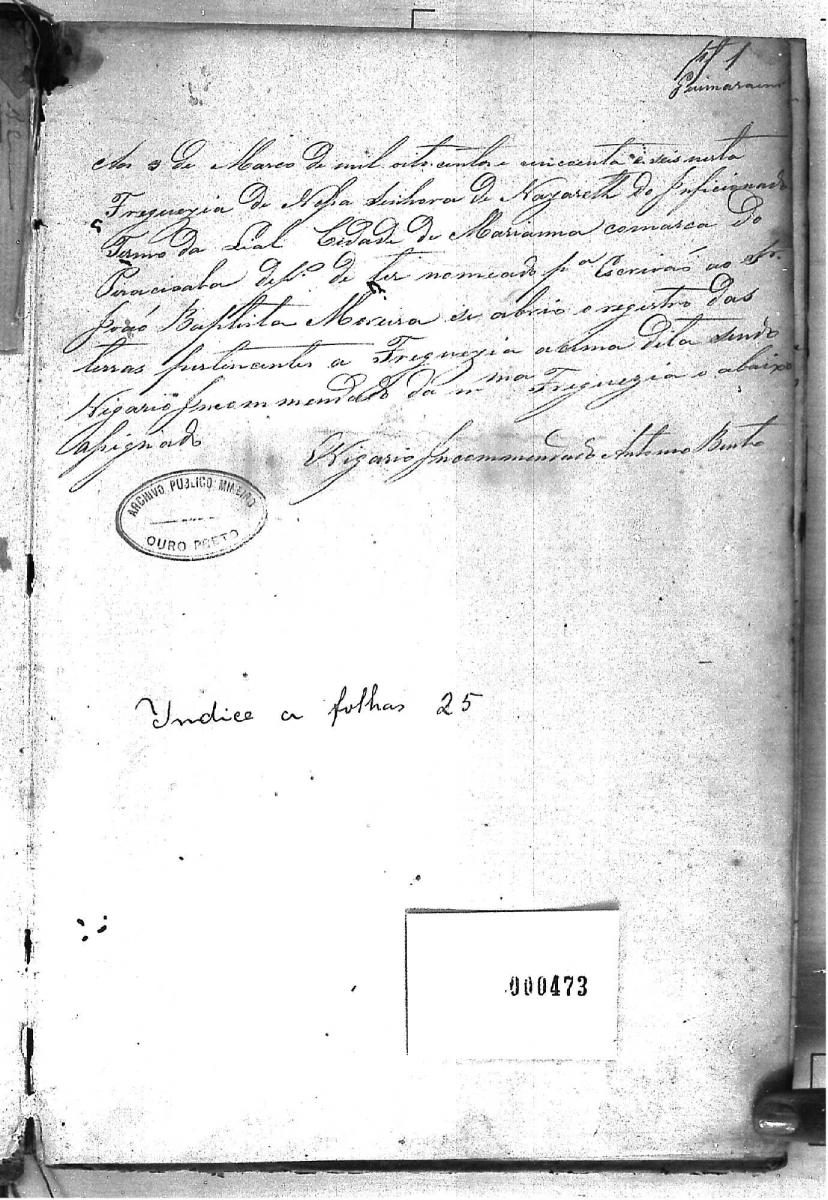 fl 1
Guimaraens
Aos 3 de Marco de mil oito centos e cincoenta e seis nesta
Freguezia de Nossa Senhora de Nazareth do Inficionado
Termo da Leal Cidade de Marianna comarca do
Piracicaba dep.s de ter nomeado p.a Escrivaõ ao Sr.
Joaõ Baptista Moreira se abrio o registro das
terras pertencentes a Freguezia acima dita sendo
Vigario Incommendado da m.ma Freguezia o abaixo
assignado
O Vigario Incommendado Antonio Bento
ARCHIVO PUBLICO MINEIRO
OURO PRETO
Yndice a folhas 25
000473